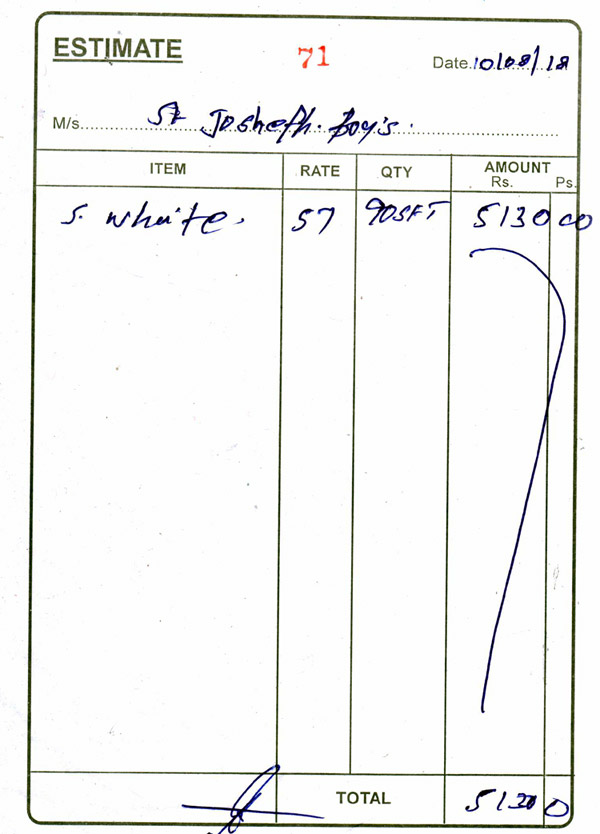 ESTIMATE 71 Date.10/08/18
M/s. St Josheph. Boy's.
ITEM RATE QTY AMOUNT
Rs. Ps.
S. white. 57 90SFT 5130 00
TOTAL 5130 0